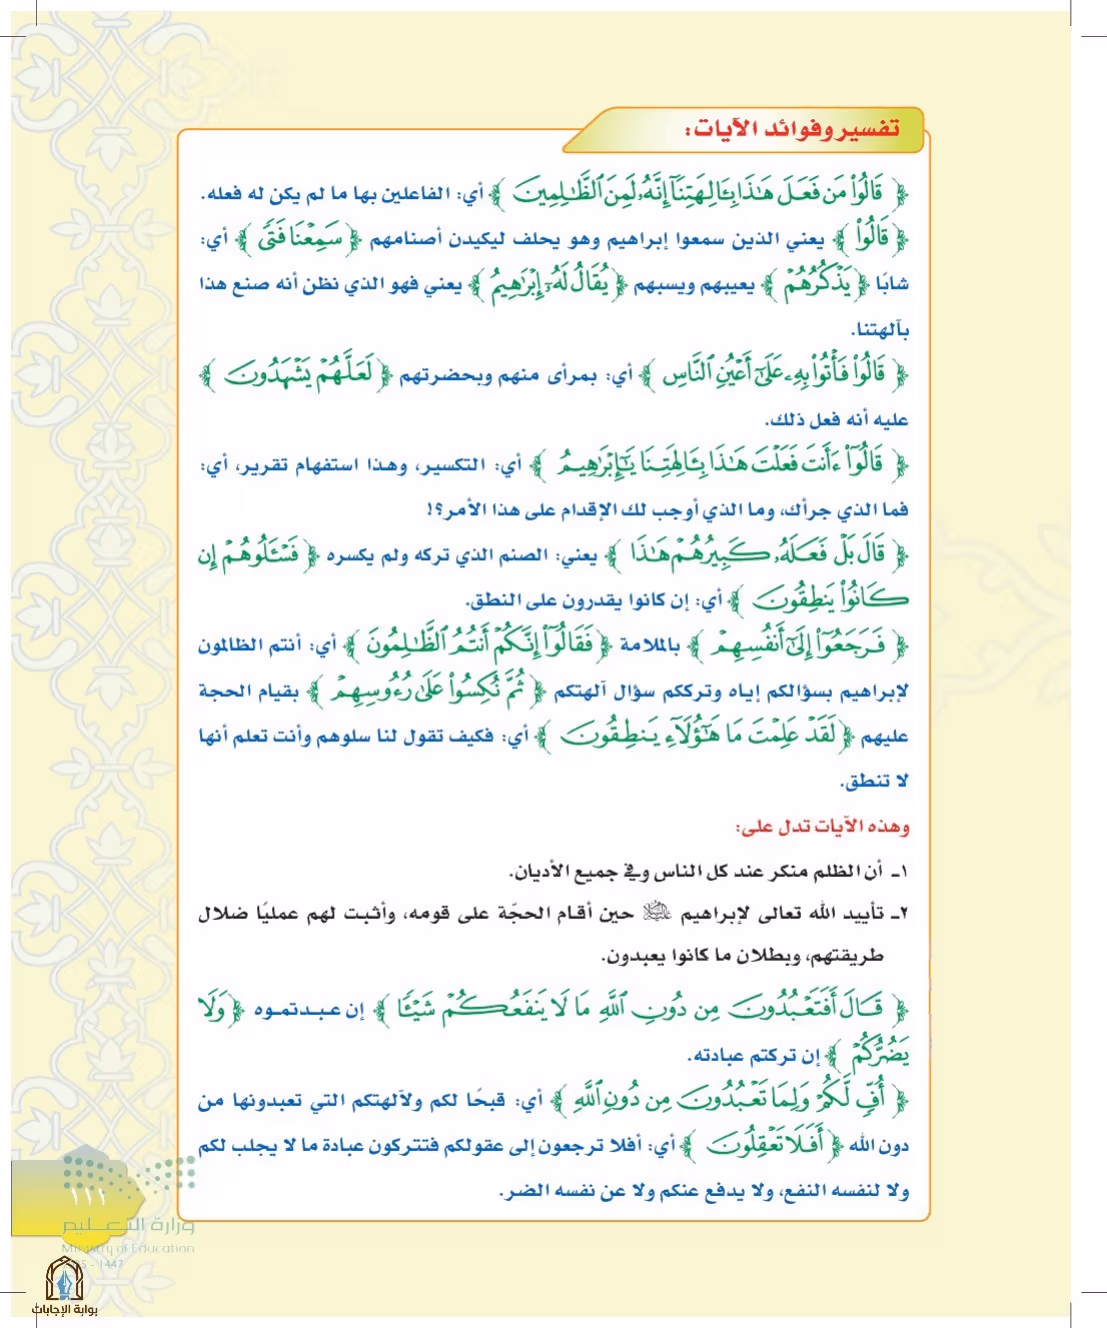 تفسير وفوائد الآيات:
﴿ قَالُواْ مَن فَعَلَ هَٰذَا بِـَٔالِهَتِنَآ إِنَّهُۥ لَمِنَ ٱلظَّٰلِمِينَ ﴾ أي: الفاعلين بها ما لم يكن له فعله.
﴿ قَالُواْ ﴾ يعني الذين سمعوا إبراهيم وهو يحلف ليكيدن أصنامهم ﴿ سَمِعْنَا فَتًى ﴾ أي:
شابًا ﴿ يَذْكُرُهُمْ ﴾ يعيبهم ويسبهم ﴿ يُقَالُ لَهُۥٓ إِبْرَٰهِيمُ ﴾ يعني فهو الذي نظن أنه صنع هذا
بآلهتنا.
﴿ قَالُواْ فَأْتُواْ بِهِۦ عَلَىٰٓ أَعْيُنِ ٱلنَّاسِ ﴾ أي: بمرأى منهم وبحضرتهم ﴿ لَعَلَّهُمْ يَشْهَدُونَ ﴾
عليه أنه فعل ذلك.
﴿ قَالُوٓاْ ءَأَنتَ فَعَلْتَ هَٰذَا بِـَٔالِهَتِنَا يَٰٓإِبْرَٰهِيمُ ﴾ أي: التكسير، وهذا استفهام تقرير، أي:
فما الذي جرأك، وما الذي أوجب لك الإقدام على هذا الأمر؟!
﴿ قَالَ بَلْ فَعَلَهُۥ كَبِيرُهُمْ هَٰذَا ﴾ يعني: الصنم الذي تركه ولم يكسره ﴿ فَسْـَٔلُوهُمْ إِن
كَانُواْ يَنطِقُونَ ﴾ أي: إن كانوا يقدرون على النطق.
﴿ فَرَجَعُوٓاْ إِلَىٰٓ أَنفُسِهِمْ ﴾ بالملامة ﴿ فَقَالُوٓاْ إِنَّكُمْ أَنتُمُ ٱلظَّٰلِمُونَ ﴾ أي: أنتم الظالمون
لإبراهيم بسؤالكم إياه وترككم سؤال آلهتكم ﴿ ثُمَّ نُكِسُواْ عَلَىٰ رُءُوسِهِمْ ﴾ بقيام الحجة
عليهم ﴿ لَقَدْ عَلِمْتَ مَا هَٰٓؤُلَآءِ يَنطِقُونَ ﴾ أي: فكيف تقول لنا سلوهم وأنت تعلم أنها
لا تنطق.
وهذه الآيات تدل على:
١ـ أن الظلم منكر عند كل الناس وفي جميع الأديان.
٢ـ تأييد الله تعالى لإبراهيم ﷺ حين أقام الحجّة على قومه، وأثبت لهم عمليًا ضلال
طريقتهم، وبطلان ما كانوا يعبدون.
﴿ قَالَ أَفَتَعْبُدُونَ مِن دُونِ ٱللَّهِ مَا لَا يَنفَعُكُمْ شَيْـًٔا ﴾ إن عبدتموه ﴿ وَلَا
يَضُرُّكُمْ ﴾ إن تركتم عبادته.
﴿ أُفٍّ لَّكُمْ وَلِمَا تَعْبُدُونَ مِن دُونِ ٱللَّهِ ﴾ أي: قبحًا لكم ولآلهتكم التي تعبدونها من
دون الله ﴿ أَفَلَا تَعْقِلُونَ ﴾ أي: أفلا ترجعون إلى عقولكم فتتركون عبادة ما لا يجلب لكم
ولا لنفسه النفع، ولا يدفع عنكم ولا عن نفسه الضر.
وزارة التعليم
Ministry of Education
1447
بوابة الإجابات